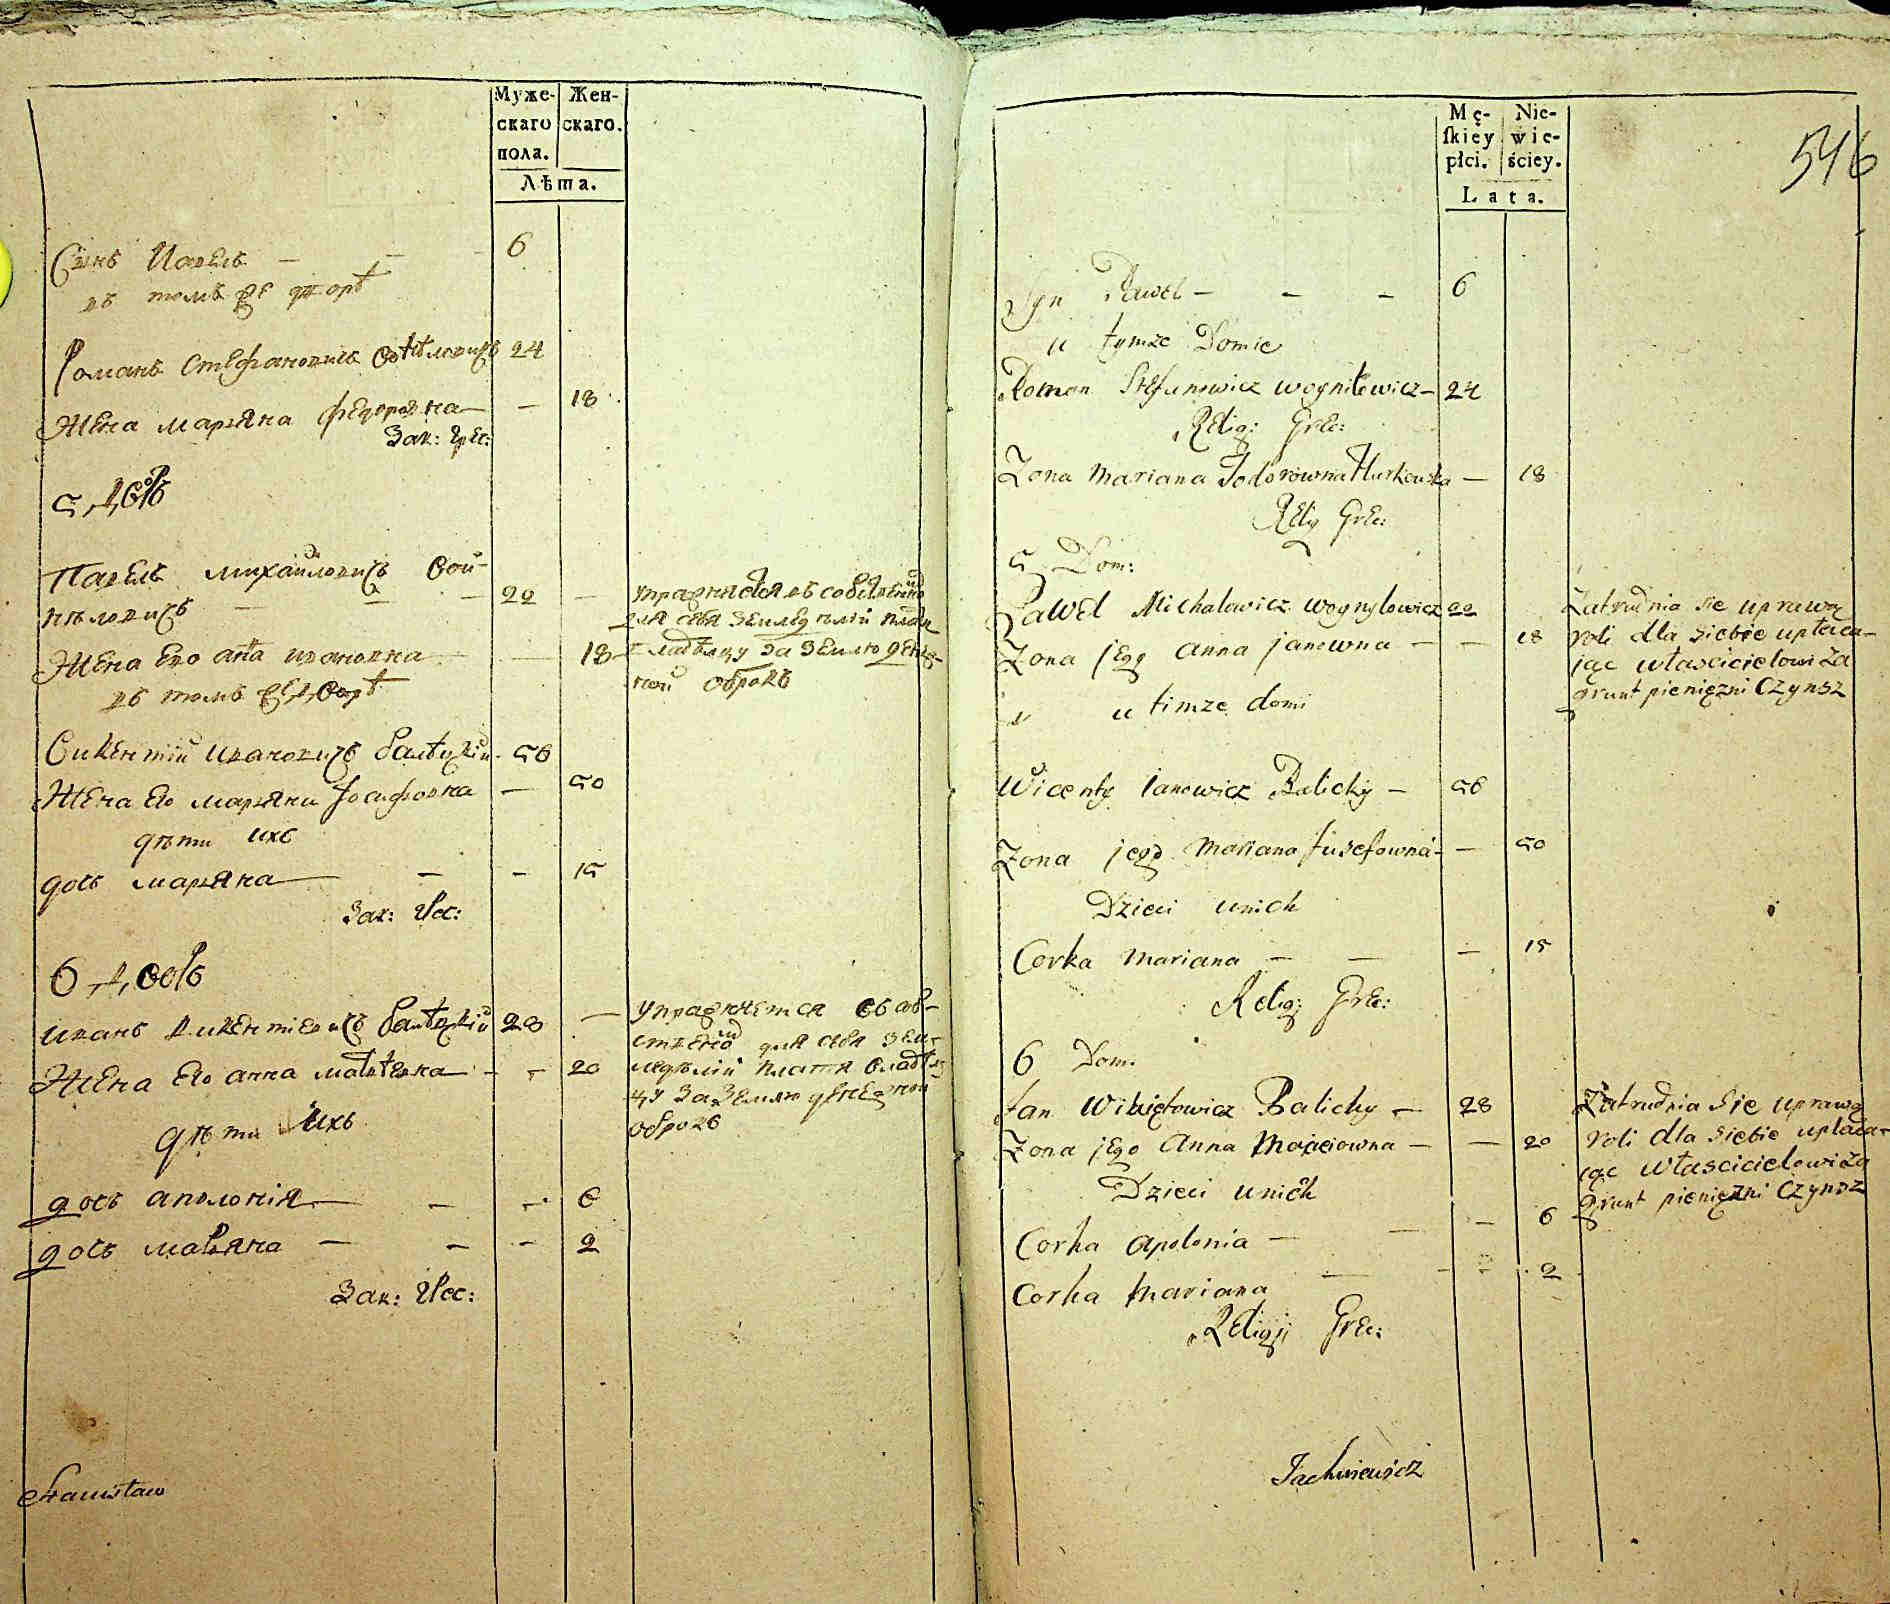 Муже-
скаго
пола.
Жен-
скаго.
Лѣта.
Сынъ Павелъ — — — 6
въ томъ же дворѣ
Романъ Стефановичъ 24
Жена марьяна федоровна — — 18
Зак: Грес:
5 Дворъ
Павелъ михайловичъ Вой-
ниловичъ — — — 22 —
Жена Его анна ивановна — — 18
въ томъ же дворѣ
Викентій ивановичъ балицкій - 56
Жена Его марьяна Іосифовна — 50
дѣти ихъ
дочь марьяна — — — 15
Зак: Грес:
6 Дворъ
иванъ викентіевичъ балицкій 28 —
Жена Его анна матвевна - - 20
дѣти ихъ
дочь аполонія — — — 6
дочь марьяна — — — 2
Зак: Грес:
упражняется въ собственно
для себя земледѣлій платя
владѣлцу за землю денеж-
ной оброкъ
упражняется въ соб-
ственой для себя зем-
ледѣлій платя владѣл-
цу за землю денежной
оброкъ
Stanisław
546
Mę-
ſkiey
płci.
Nie-
wie-
ściey.
Lata.
Syn Paweł — — — 6
u tymze Domie
Roman Stefanowicz woyniłowicz — 24
Relig: Grec:
Zona Mariana Fodorowna — 18
Relig Grec:
5 Dom:
Paweł Michałowicz woynyłowicz 22
Zona jego anna janowna — — 18
u timze domi
Wicenty Janowicz Balicky — 56
Zona jego Mariana Jusefowna — — 50
Dzieci unich
Corka Mariana — — — 15
Relig: Grec:
6 Dom:
Jan Wikietowicz Balicky — 28
Zona jego Anna Maciowna — — 20
Dzieci unich
Corka apolonia — — — 6
Corka Mariana — - 2
Religij Grec:
Zatrudnia sie uprawą
roli dla siebie upłaca-
jąc właścicielowi Za
grunt pienięzni Czynsz
Zatrudnia sie uprawą
roli dla siebie upłaca-
jąc właścicielowi Za
grunt pienięzni Czynsz
Jachniewicz